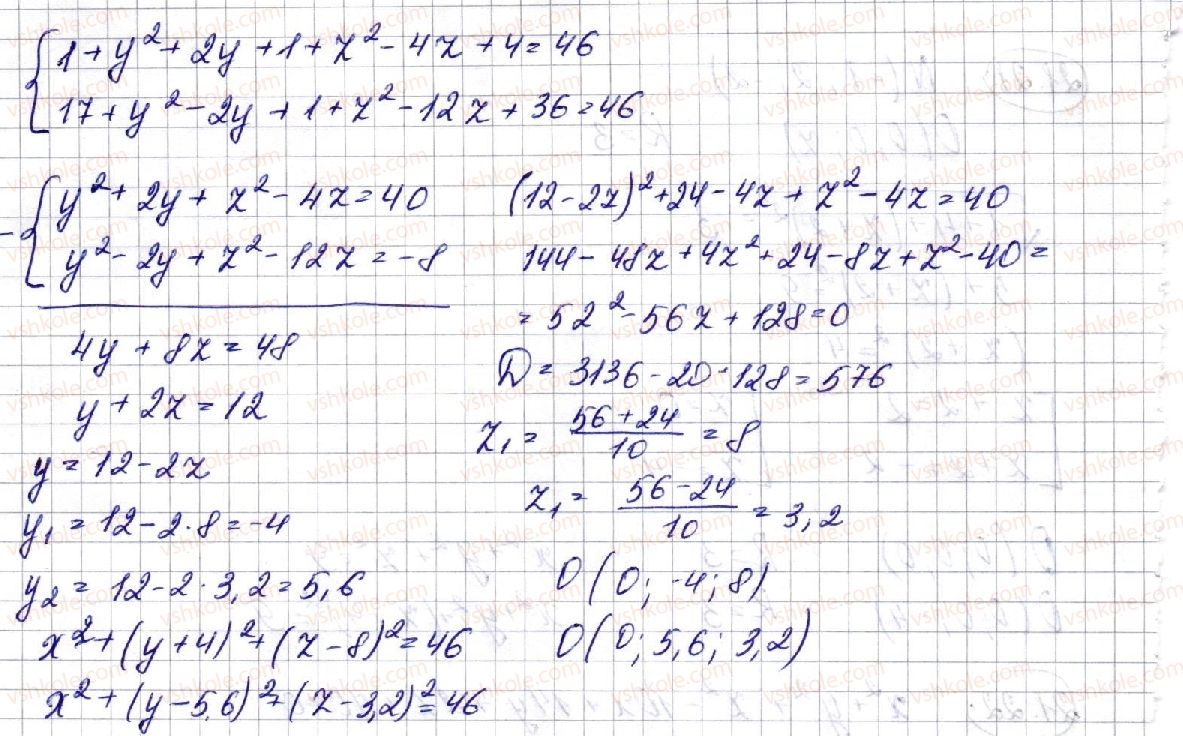 1 + y² + 2y + 1 + z² - 4z + 4 = 46
17 + y² - 2y + 1 + z² - 12z + 36 = 46
y² + 2y + z² - 4z = 40
y² - 2y + z² - 12z = -8
4y + 8z = 48
y + 2z = 12
y = 12 - 2z
y₁ = 12 - 2·8 = -4
y₂ = 12 - 2·3,2 = 5,6
x² + (y + 4)² + (z - 8)² = 46
x² + (y - 5,6)² + (z - 3,2)² = 46
(12 - 2z)² + 24 - 4z + z² - 4z = 40
144 - 48z + 4z² + 24 - 8z + z² - 40 =
= 52² - 56z + 128 = 0
D = 3136 - 20·128 = 576
z₁ = (56 + 24)/10 = 8
z₁ = (56 - 24)/10 = 3,2
O(0; -4; 8)
O(0; 5,6; 3,2)
vshkole.com